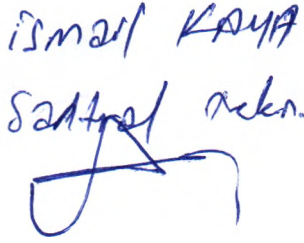 ismail KAYA
Santral tekn.